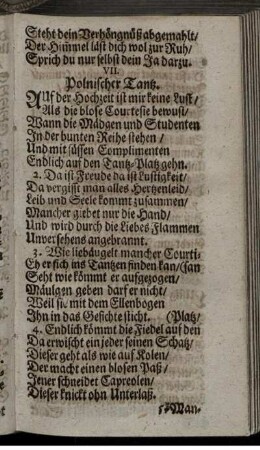 Steht dein Verhängnüß abgemahlt/
Der Himmel läst dich wol zur Ruh/
Sprich du nur selbst dein Ja darzu.
VII.
Polnischer Tantz.
AUf der Hochzeit ist mir keine Lust/
Als die blose Courtesie bewust/
Wann die Mädgen und Studenten
In der bunten Reihe stehen/
Und mit süssen Complimenten
Endlich auf den Tantz-Platz gehn.
2. Da ist Freude da ist Lustigkeit/
Da vergisst man alles Hertzenleid/
Leib und Seele kommt zusammen/
Mancher giebet nur die Hand/
Und wird durch die Liebes Flammen
Unversehens angebrannt.
3. Wie liebäugelt mancher Courti-
Eh er sich ins Tantzen finden kan/(san
Seht wie kömmt er aufgezogen/
Mäulgen geben darf er nicht/
Weil sie mit dem Ellenbogen
Ihn in das Gesichte sticht. (Platz/
4. Endlich kömmt die Fiedel auf den
Da erwischt ein jeder seinen Schatz/
Dieser geht als wie auf Kolen/
Der macht einen blosen Paß/
Jener schneidet Capreolen/
Dieser knickt ohn Unterlaß.
5. Man-